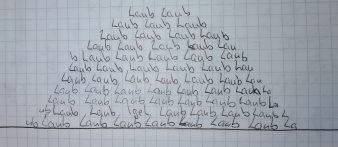 Laub Laub
Laub Laub Laub
Laub Laub Laub Laub
Laub Laub Laub Laub Lau
b Laub Laub Laub Laub Laub
Laub Laub Laub Laub Laub Lau
Laub Laub Laub Laub Laub Laub Lau
Laub Laub Laub Laub Laub Laub Lau
Laub Laub Laub Laub Laub Laub Laub La
ub Laub Laub Igel Laub Laub Laub Laub L
ub Laub Laub Laub Laub Laub Laub Laub La